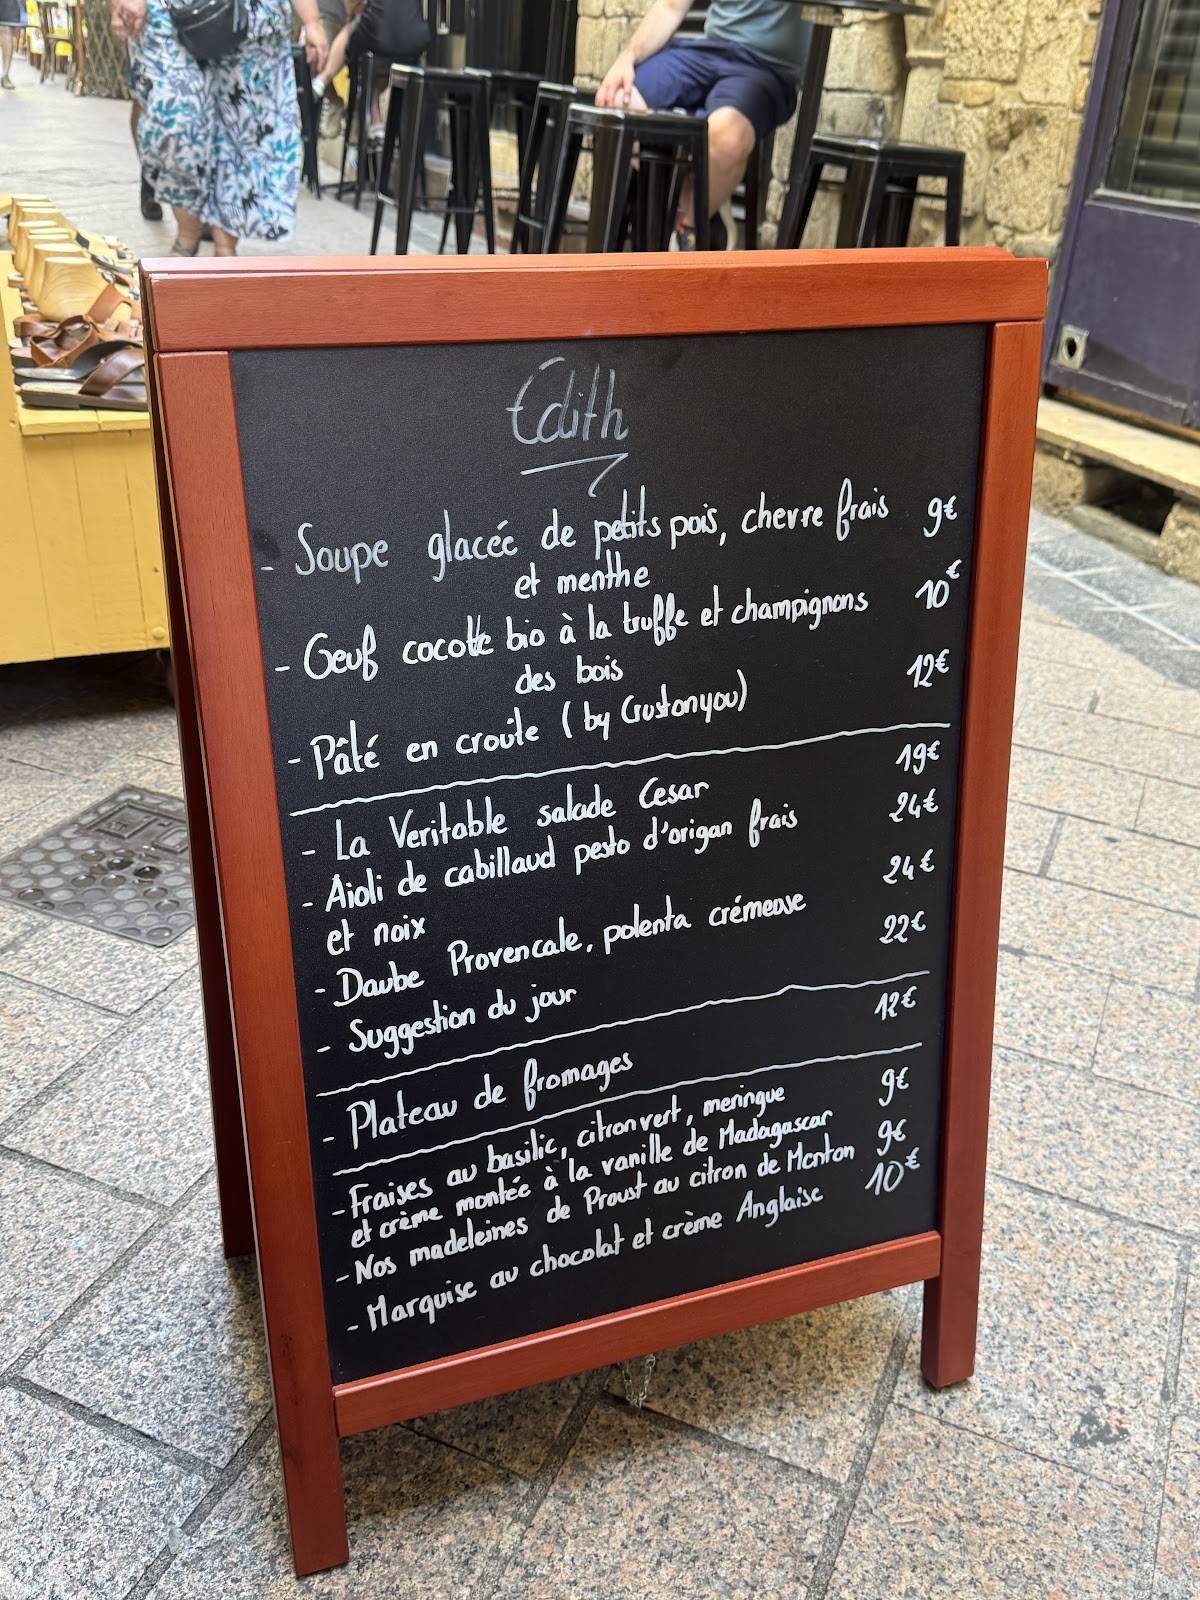 Edith
- Soupe glacée de petits pois, chevre frais 9€
et menthe
- Oeuf cocotte bio à la truffe et champignons 10€
des bois
- Pâté en croûte (by Crustonyou) 12€
- La Veritable salade Cesar 19€
- Aioli de cabillaud pesto d'origan frais 24€
et noix
- Daube Provencale, polenta crémeuse 24€
- Suggestion du jour 22€
- Plateau de fromages 12€
- Fraises au basilic, citron vert, meringue 9€
et crème montée à la vanille de Madagascar
- Nos madeleines de Proust au citron de Menton 9€
- Marquise au chocolat et crème Anglaise 10€